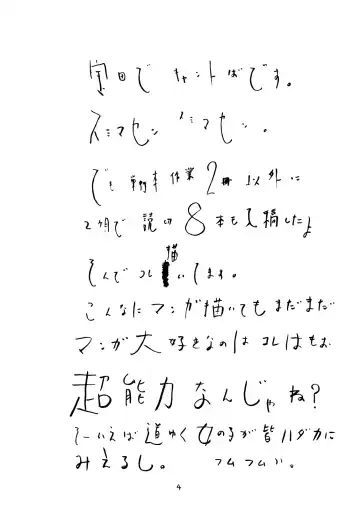 全日で キャントばです。
スミマセン スミマセン。
でも 単行本 作業 2冊 以外に
2ヶ月で 読切 8本も入稿したよ
そんでコレ描いてます。
こんなにマンガ描いてもまだまだ
マンガ大好きなのは コレはもお
超能力なんじゃね?
そーいえば道ゆく女の子が皆ハダカに
みえるし。 フムフム
4